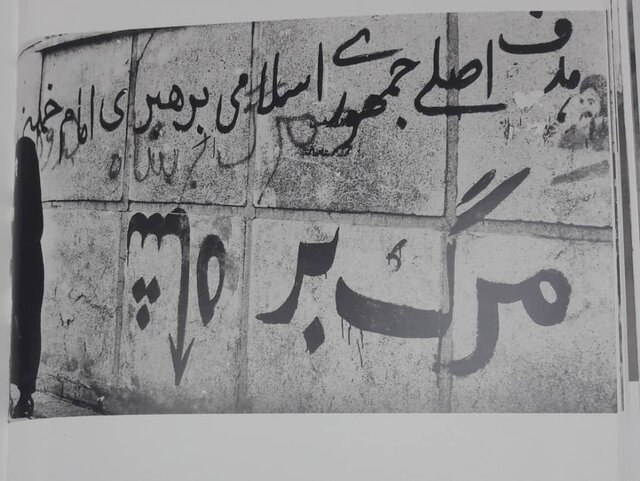 هدف اصلی جمهوری اسلامی برهبری امام خمینی
مرگ بر شاه